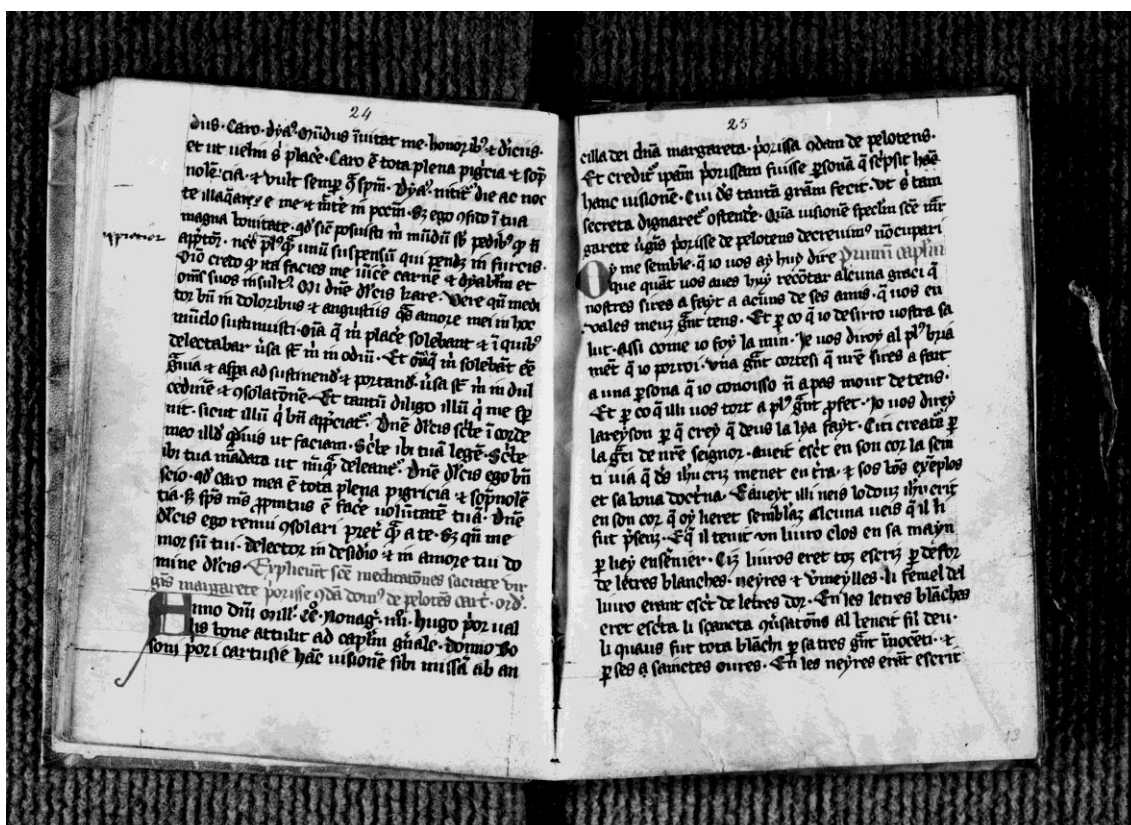 24
dus. Caro. dya9. Mūdus īuitat me. honorib9 ⁊ diciis.
et ut uelin placē. Caro ē tota plena pigricia ⁊ sop
nolēcia. ⁊ vult semp 9 spm. Dya9. nitit die ac noc
te e me ⁊ mīte in pccm. sz ego 9fido ī tua
magna bonitate. posuisti m mūdū pedib9
pl9 unū suspensū qui pendz in furcis.
credo ita facies me carnē ⁊ dyablm et
oms suos insult9. Mi dne dlcis kare. Vere qn medi
tor bn in doloribus ⁊ angustiis amore mei in hoc
mūdo sustinuisti. oīa q m placē solebant ⁊ ī quib9
delectabar ūsa st m in odiū. Et m solebāt eē
⁊ aspa ad sustinend ⁊ portand. ūsa st m in dul
cedinē ⁊ 9solatōnē. Et tantū diligo illū q me
nit. sicut illū q bn Dne dlcis scbe ī corde
meo ut faciam. Scbe ibi tuā legē. Scbe
ibi tua mādata ut nūq deleant. Dne dlcis ego bn
scio. qd caro mea ē tota plena pigricia ⁊ sopnolē
tia. sz sps ms promtus ē face uolūtatē tuā. Dne
dlcis ego renui 9solari pret a te. sz qn me
mor sū tui. delector in desidio ⁊ in amore tui do
mine dlcis. Expliciūt sce meditatōnes sacrate vir
gis margarete porisse dom9 de pelotēs cart. ord.
Anno dni Mill. CC. Nonag. iiii. hugo por ual
lis bone attulit ad caplm gnale. donno Bo
soni pori cartusie hāc uisionē sibi missā ab an
25
cilla dei dna margareta. porissa qdam de pelotens.
Et credit ipam porissam fuisse psonā q scpsit hāc
hanc uisionē. Cui ds tantā grām fecit. vt s tam
secreta dignaret ostende. Quā uisionē speclm sce mar
garete ugis porisse de pelotens decreuim9 nūcupari
Oy me semble. q io uos ay huy dire Primū caplm
que quāt uos aues huy recōtar alcuna graci q
nostres sires a fayt a acuns de ses amis. q uos en
vales meuz gnt tens. Et p co q io desirro uostra sa
lut. assi come io foy la min. Je uos diroy al pl9 bria
mēt q io porroi. vna gnt cortesi q nre sires a fait
a una psona q io conoisso n a pas mout de tens.
Et p co q illi uos tort a pl9 gnt pfet. Jo uos direy
la reyson p q crey q deus la lya fayt. Citi creata p
la gti de nre seignor. aueit escit en son cor la sein
ti uia q ds ihu criz menet en tra. ⁊ sos bōs exēplos
et sa bona doctna. Eaueyt illi neis lo douz ihu crit
en son cor q oy heret semblaz alcuna ueis q il li
fut psenz. E q il tenit un liuro clos en sa mayn
p liey ensenier. Ciz liuros eret toz escriz p defor
de letres blanches. neyres ⁊ vmeylles. li femel del
liuro erant escit de letres dor. En les letres blāches
eret escta li scancta 9usatōns al beneit fil deu.
li quaus fut tota blāchi p sa tres gnt inocēti. ⁊
p ses sainctes oures. En les neyres erāt escrit
13